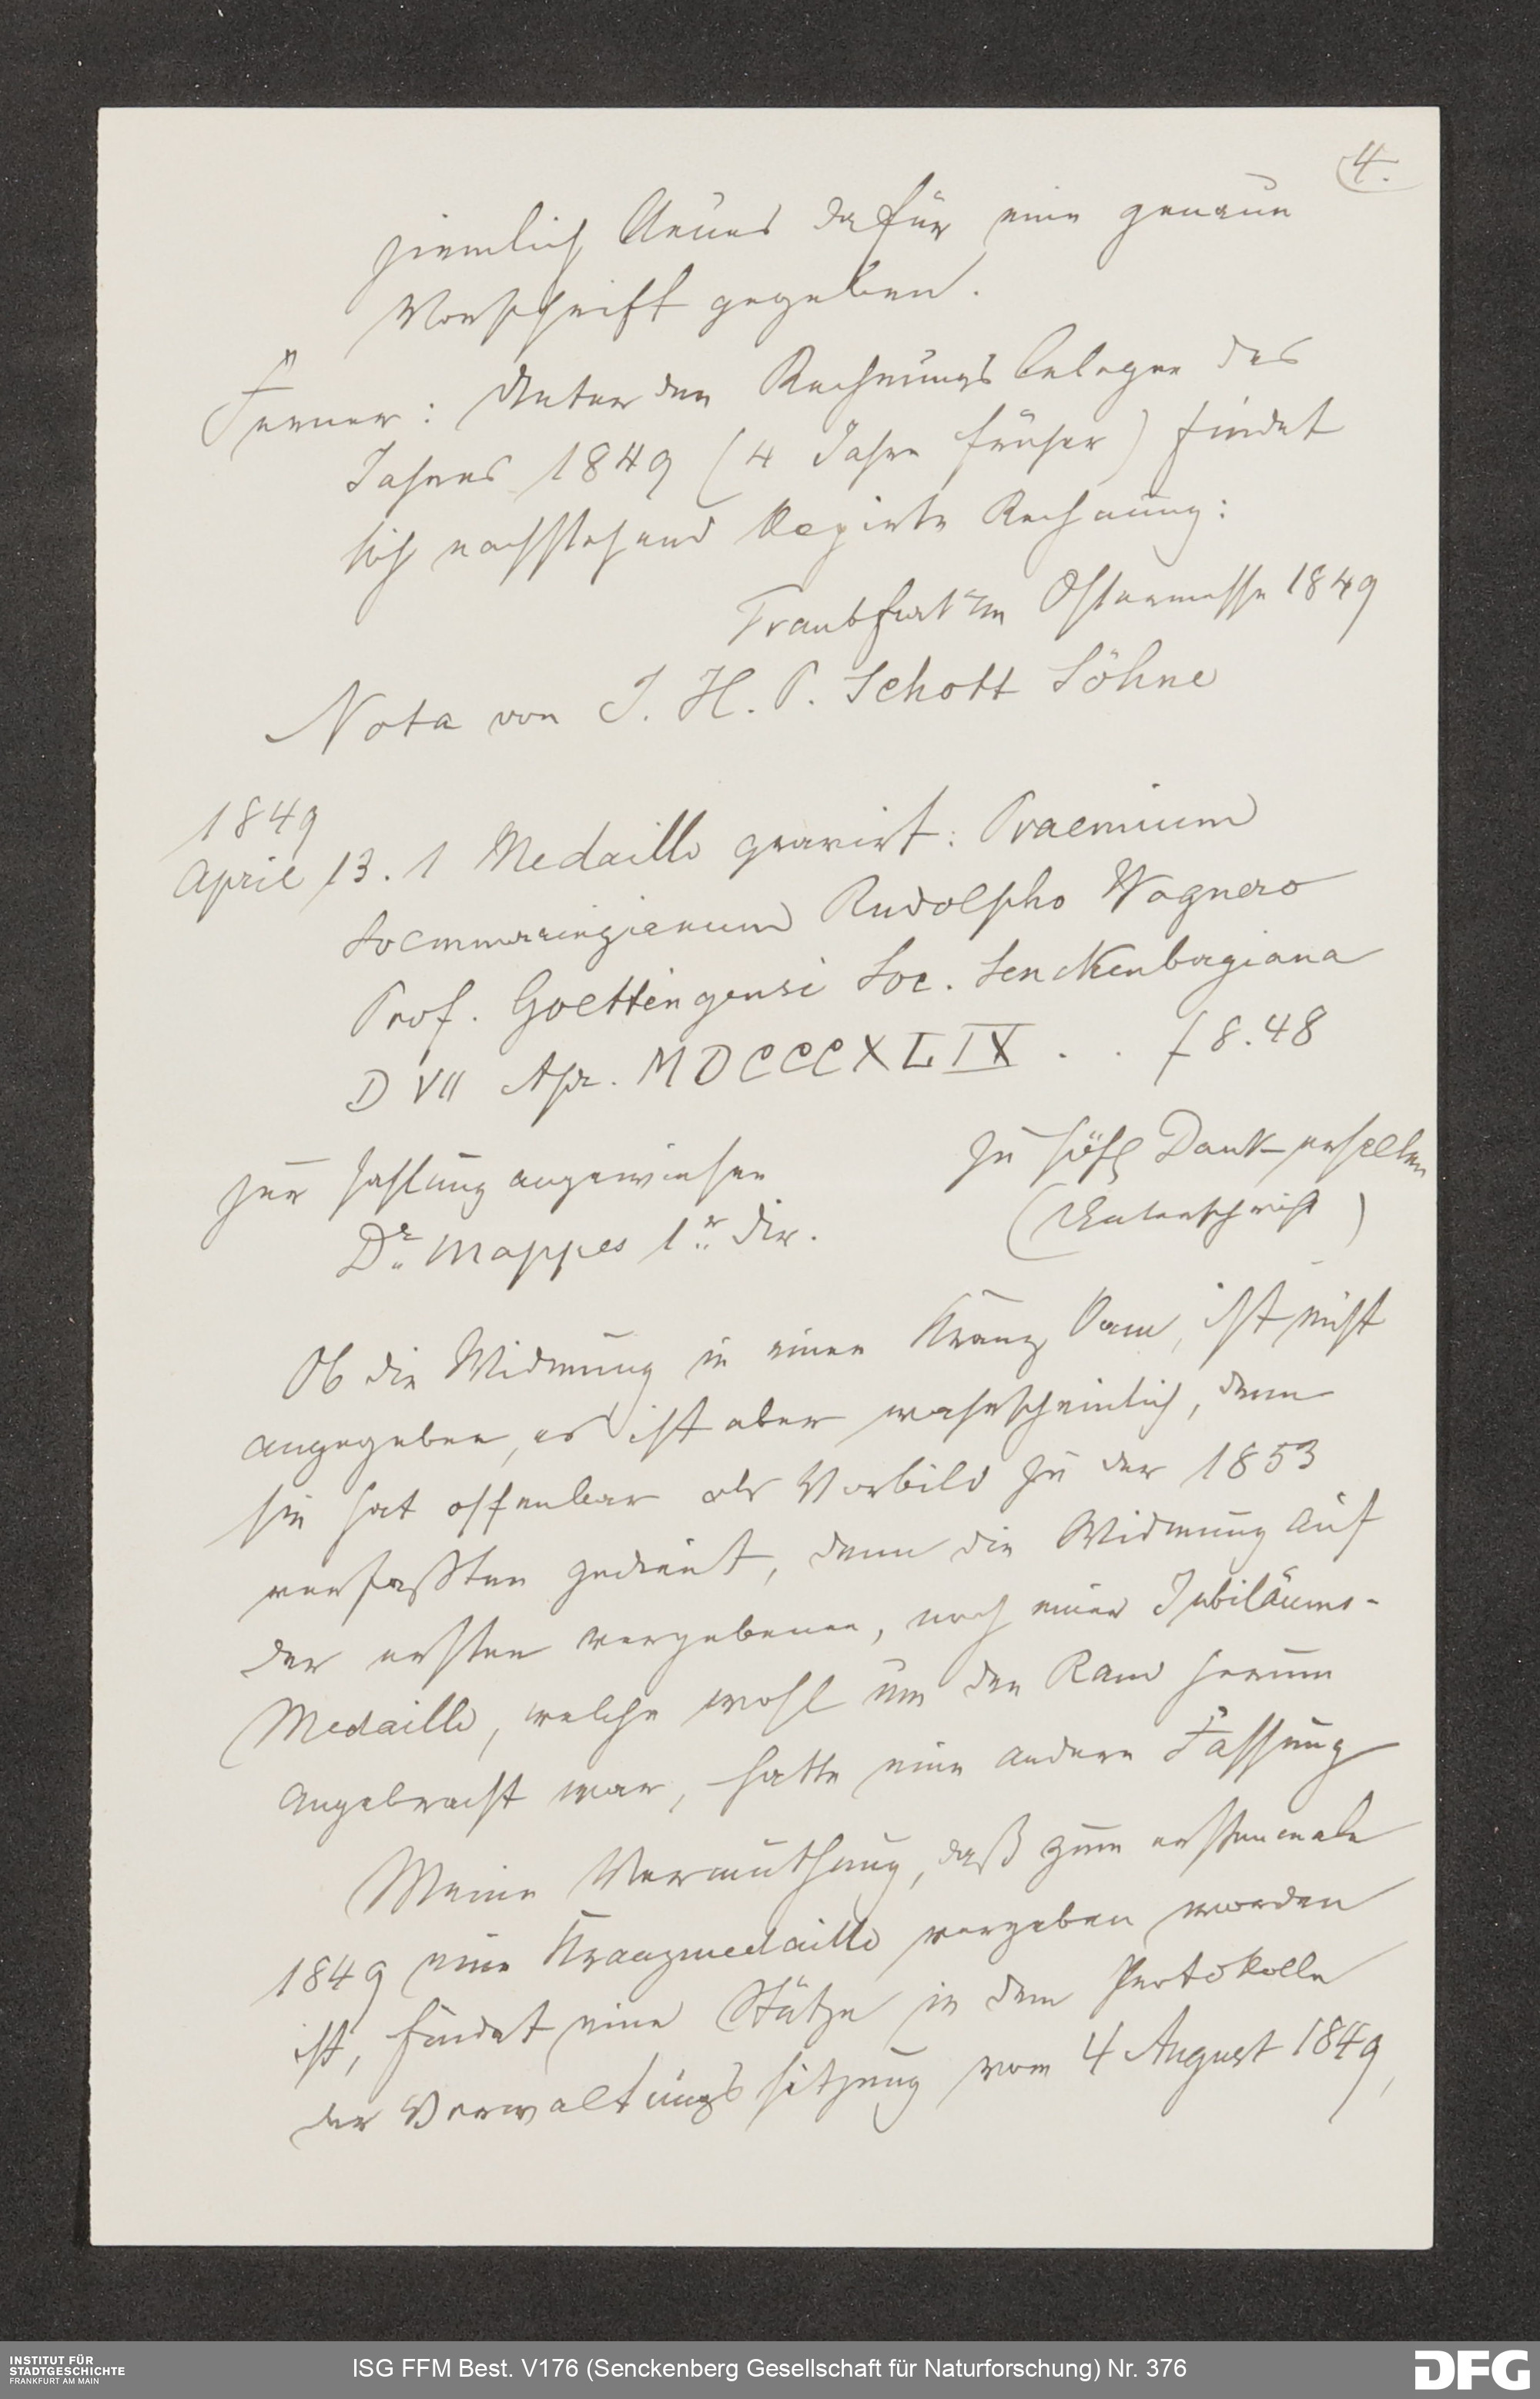 4.
ziemlich Neues dafür eine genaue
Vorschrift gegeben.
Ferner: Unter den Rechnungsbelegen des
Jahres 1849 (4 Jahre früher) findet
sich nachstehend kopirte Rechnung:
Frankfurt a/m Ostermesse 1849
Nota von J. H. P. Schott Söhne
1849
April 13. 1 Medaille gravirt: Praemium
Soemmerringianum Rudolpho Wagnero
Prof. Goettingensi Soc. Senckenbergiana
D VII Apr. MDCCCXLIX . . f 8.48
zur Zahlung angewiesen
Dr. Mappes 1r. Dir.
zu höfl Dank erhalten
(Unterschrift)
Ob die Widmung in einen Kranz kam, ist nicht
angegeben, es ist aber wahrscheinlich, denn
sie hat offenbar als Vorbild zu der 1853
verfaßten gedient, denn die Widmung auf
der ersten vergebenen, noch einer Jubiläums-
Medaille, welche wohl um den Rand herum
angebracht war, hatte eine andere Fassung
Meine Vermuthung, daß zum erstenmale
1849 eine Kranzmedaille vergeben worden
ist, findet eine Stütze in dem Protokolle
der Verwaltungssitzung vom 4 August 1849,
INSTITUT FÜR
STADTGESCHICHTE
FRANKFURT AM MAIN
ISG FFM Best. V176 (Senckenberg Gesellschaft für Naturforschung) Nr. 376
DFG